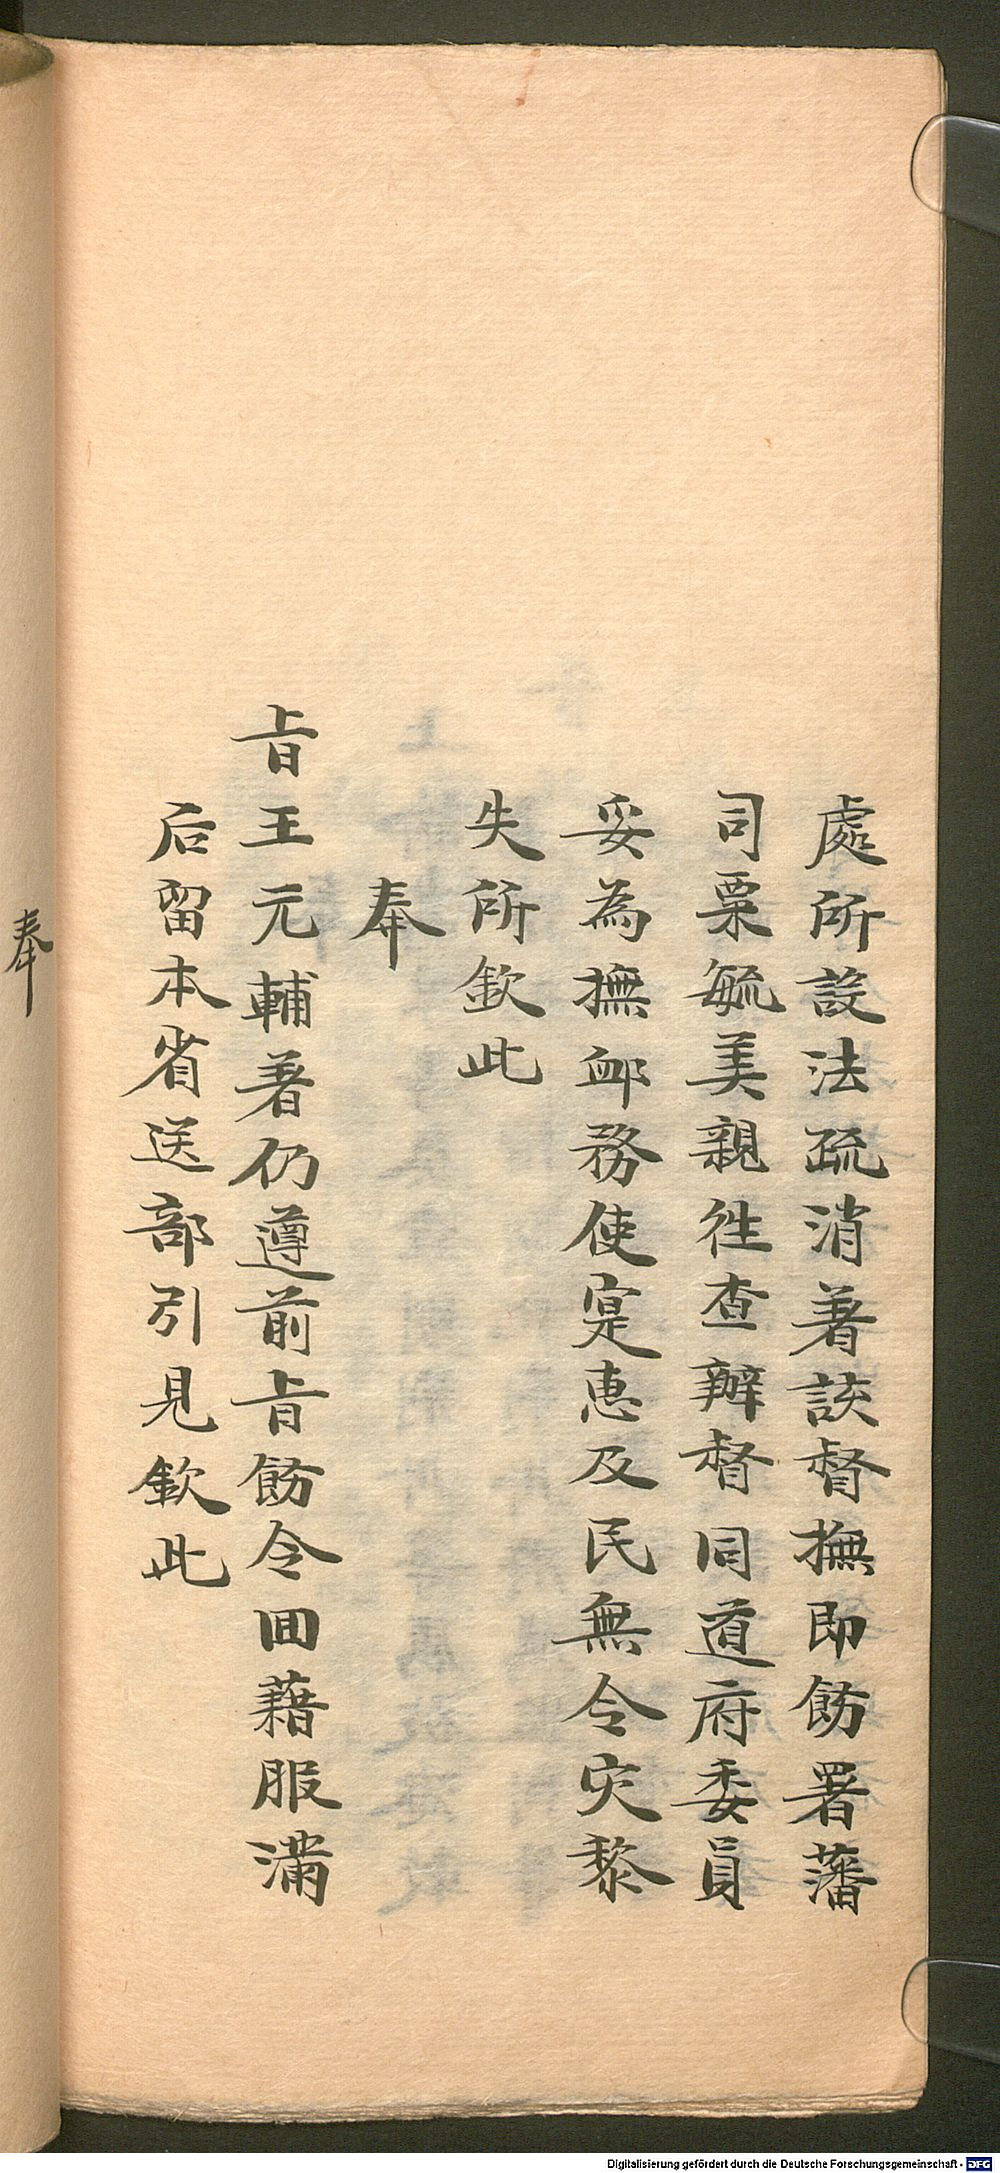 處所設法疏消著該督撫即飭署藩
司栗毓美親徃查辦督同道府委員
妥為撫䘏務使寔惠及民無令灾黎
失所欽此
奉
旨王元輔著仍遵前旨飭令囬藉服滿
后留本省送部引見欽此
奉
Digitalisierung gefördert durch die Deutsche Forschungsgemeinschaft - DFG